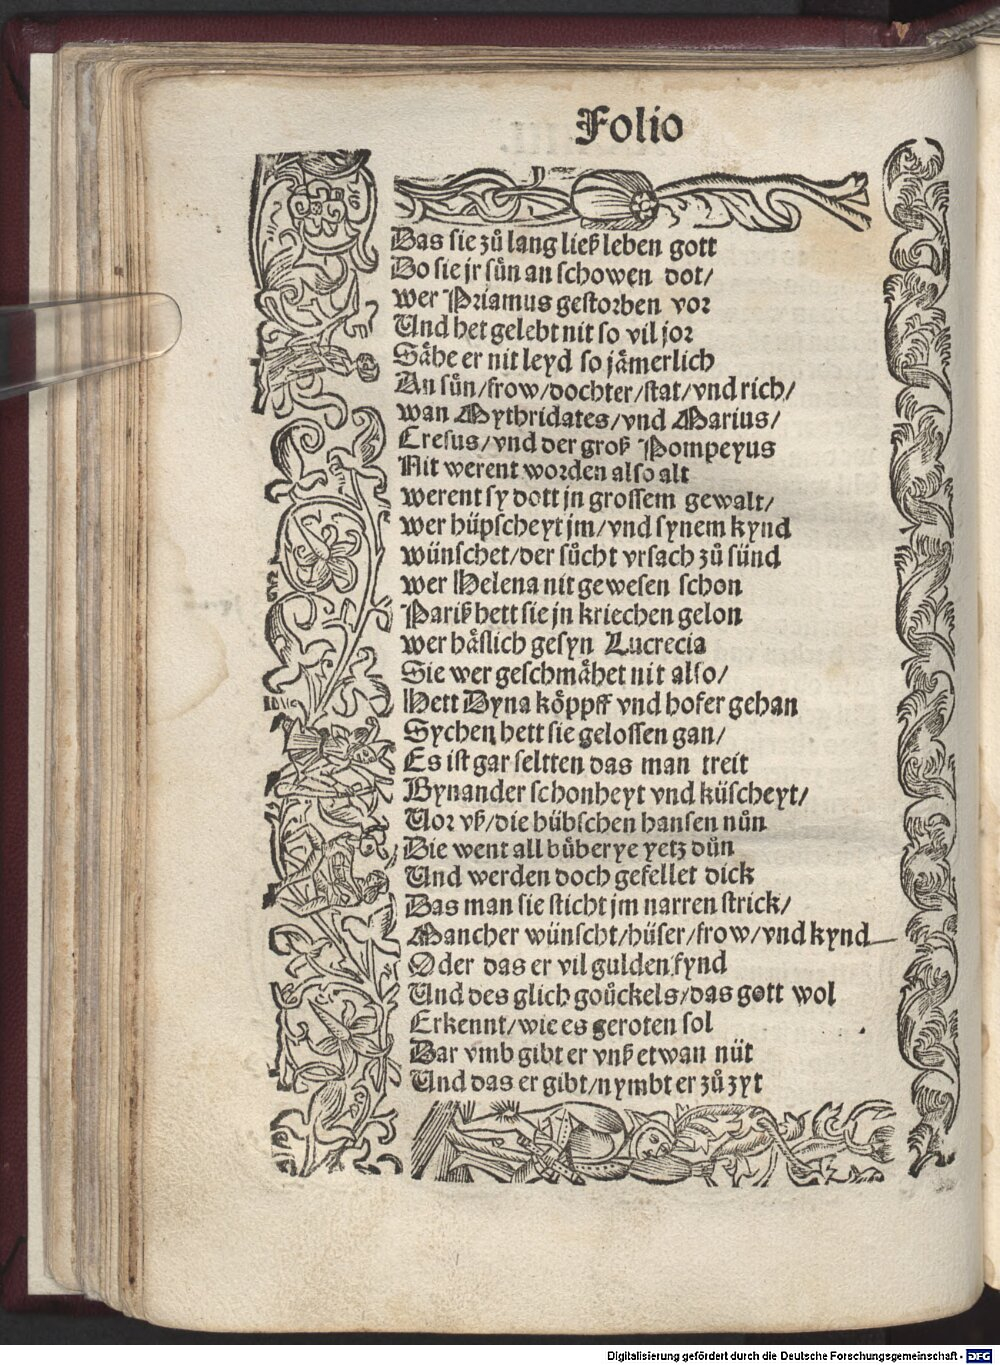 Folio
Das sie zuͦ lang ließ leben gott
Do sie jr sün an schowen dot/
wer Priamus gestorben vor
Und het gelebt nit so vil jor
Sähe er nit leyd so jämerlich
An sün/frow/dochter/stat/vnd rich/
wan Mythridates/vnd Marius/
Cresus/vnd der groß Pompeyus
Nit werent worden also alt
werent sy dott jn grossem gewalt/
wer hüpscheyt jm/vnd synem kynd
wünschet/der suͦcht vrsach zuͦ sünd
wer Helena nit gewesen schon
Pariß hett sie jn kriechen gelon
wer häslich gesyn Lucrecia
Sie wer geschmähet nit also/
Hett Dyna köppff vnd hofer gehan
Sychen hett sie gelossen gan/
Es ist gar seltten das man treit
Bynander schonheyt vnd küscheyt/
Vor vß/die hübschen hansen nuͦn
Die went all buͦberye yetz duͦn
Und werden doch gefellet dick
Das man sie sticht jm narren strick/
Mancher wünscht/hüser/frow/vnd kynd
Oder das er vil gulden fynd
Und des glich gouͦckels/das gott wol
Erkennt/wie es geroten sol
Dar vmb gibt er vnß etwan nüt
Und das er gibt/nymbt er zuͦ zyt
Digitalisierung gefördert durch die Deutsche Forschungsgemeinschaft - DFG